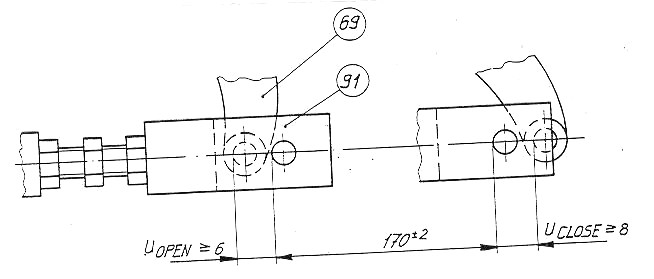 69
91
u OPEN ≥ 6
170±2
u CLOSE ≥ 8